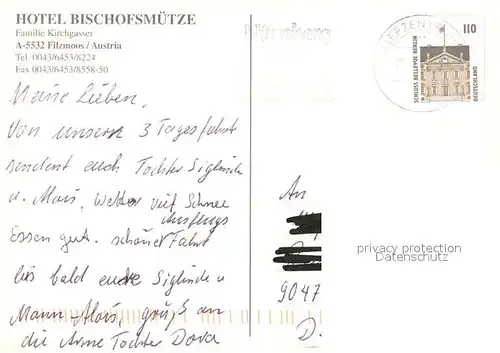 HOTEL BISCHOFSMÜTZE
Familie Kirchgasser
A-5532 Filzmoos / Austria
Tel. 0043/6453/8224
Fax 0043/6453/8558-50
Meine Lieben,
Von unserer 3 Tagesfahrt
sendent euch Tochter Siglinde
u. Alois, Wetter viel Schnee
Essen gut. schöner Ausflugs Fahrt
bis bald eure Siglinde u
Mann-Alois, gruß an
die Arme Tochter Dora
110
SCHLOSS BELLEVUE BERLIN
DEUTSCHLAND
An
9047
D.
privacy protection
Datenschutz